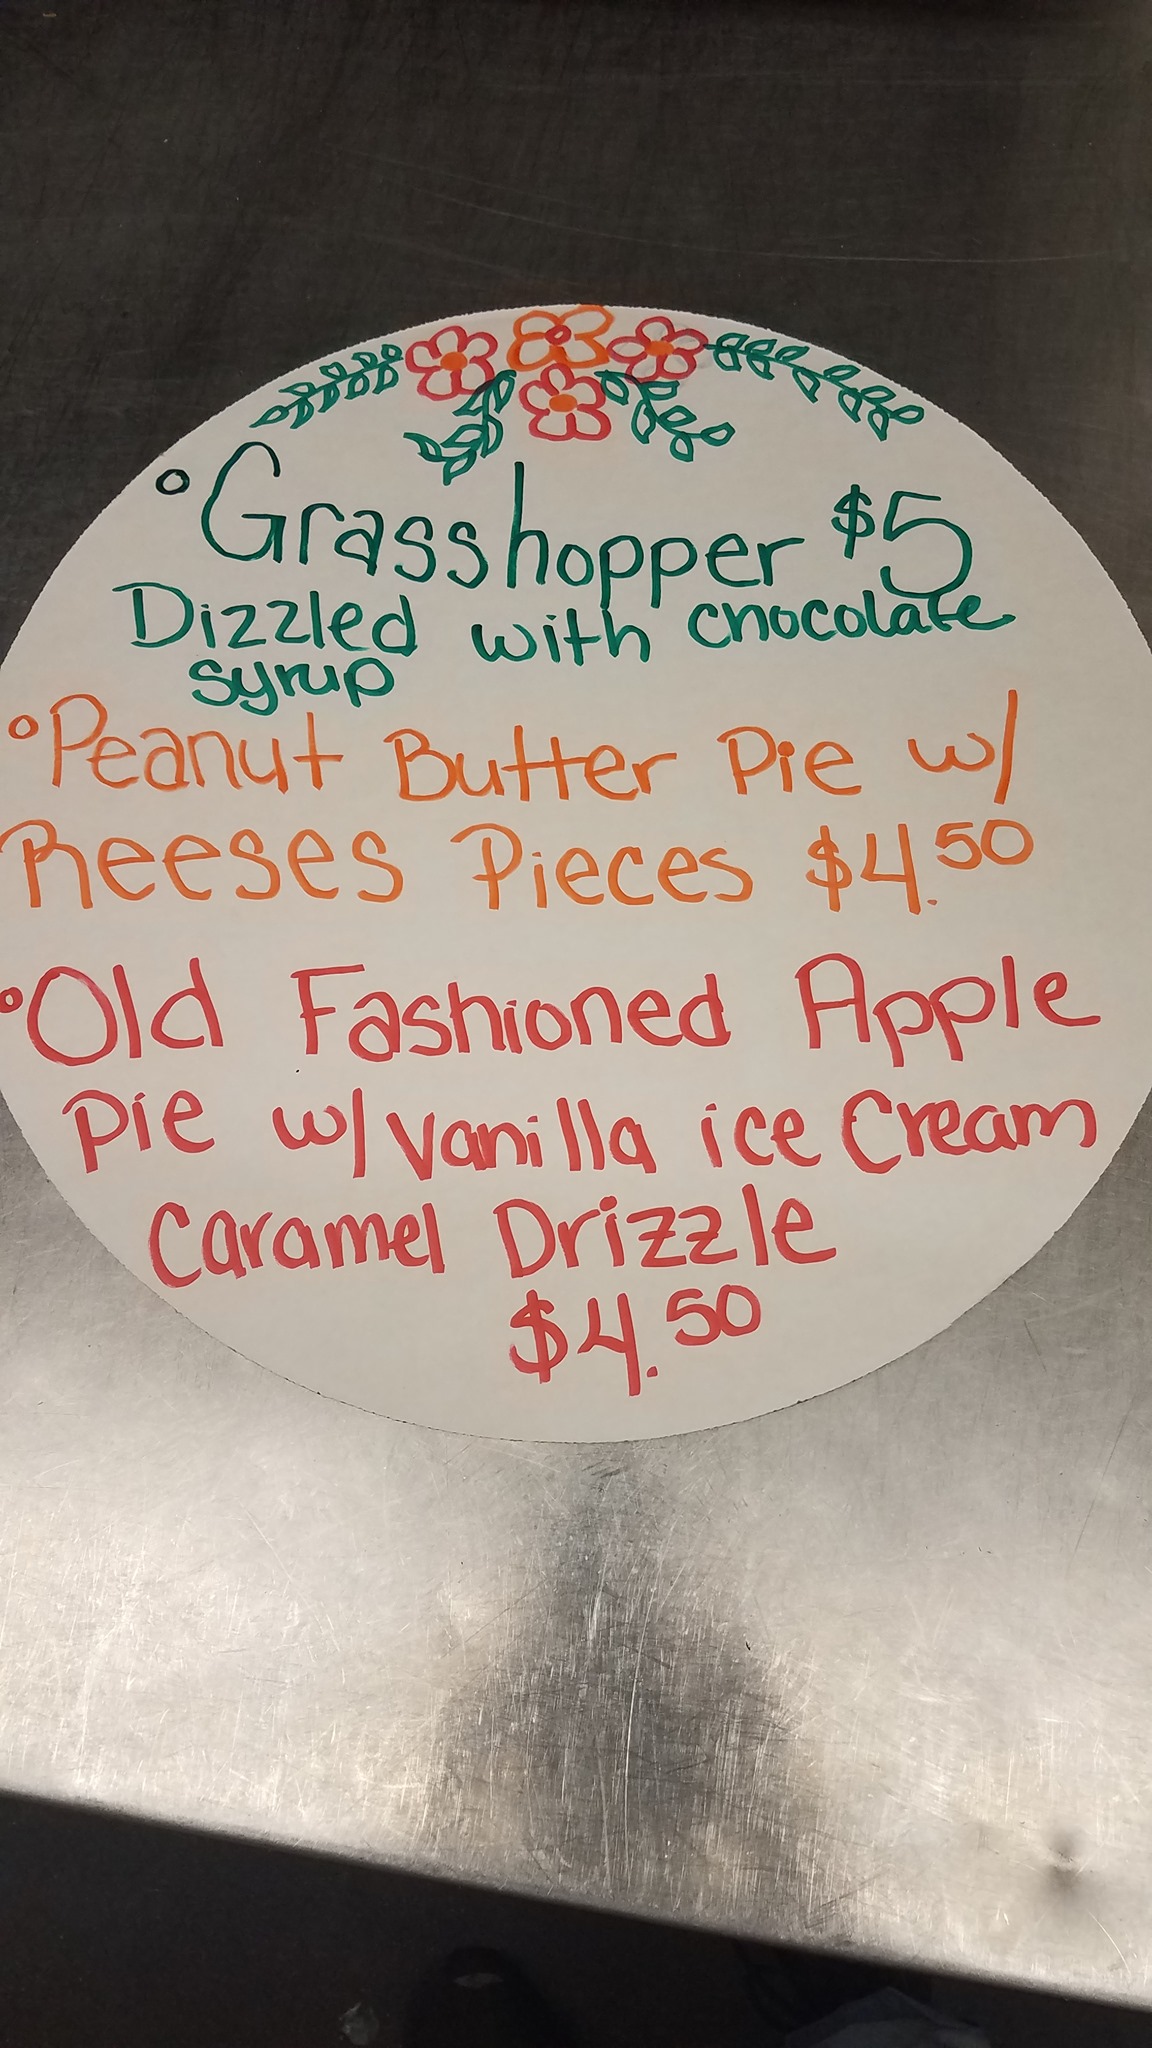 °Grasshopper $5
Dizzled with chocolate
syrup
°Peanut Butter Pie w/
Reeses Pieces $4.50
°Old Fashioned Apple
Pie w/ vanilla ice cream
Caramel Drizzle
$4.50